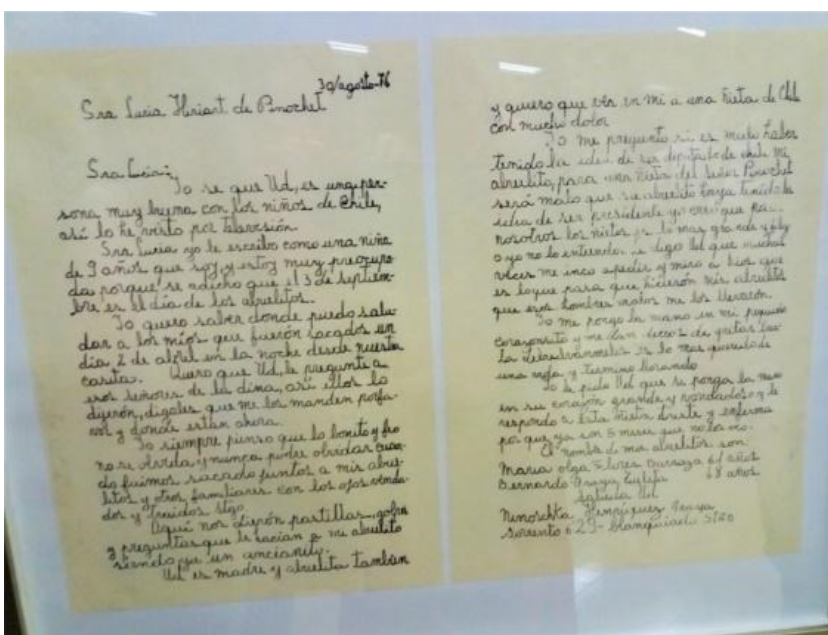 30/agosto-76
Sra Lucia Hiriart de Pinochet
Sra Lucia:
Yo se que Ud, es una per-
sona muy buena con los niños de Chile,
así lo he visto por television.
Sra Lucia yo le escribo como una niña
de 9 años que soy, y estoy muy preocupa-
da porque se a dicho que el 3 de septiem-
bre es el día de los abuelitos.
Yo quiero saber donde puedo salu-
dar a los míos que fuerón sacados un
día 2 de abril en la noche desde nuestra
casita. Quiero que Ud, le pregunte a
esos señores de la dina, así ellos lo
dijerón, digales que me los manden porfa-
vor y donde estan ahora.
Yo siempre pienso que lo bonito y feo
no se olvida, y nunca podre olvidar cuan-
do fuimos sacado juntos a mis abue-
litos y otros familiares con los ojos venda-
dos y traidos Stgo.
Aquí nos dierón pastillas, golpes
y preguntas que le hacían a mi abuelito
siendo ya un ancianito.
Ud es madre y abuelita también
y quiero que vea en mi a una nieta de Chile
con mucho dolor
Yo me pregunto si es malo haber
tenido la idea de ser diputado de chile mi
abuelito, para una nieta del señor Pinochet
será malo que su abuelito haya tenido la
idea de ser presidente yo creo que pa
nosotros los nietos es lo mas grande y
o yo no lo entiendo, le digo Ud que muchas
veces me inco a pedir y miro a Dios que
es lo que para que hicierón mis abuelitos
que esos hombres malos me los llevarón.
Yo me pongo la mano en mi pequeño
corazonsito y me dan deseos de gritar
lo mas querido de
una y termino llorando
Yo le pido Ud que se ponga la mano
en su corazón grande y vondadoso y le
responda a esta nieta triste y enferma
por que ya son 5 meses que no los veo.
El nombre de mis abuelitos son:
Maria Olga Flores Barraza 61 años
Bernardo Araya Zuleta 68 años
Saluda At
Ninoschka Henriquez Araya
Sorrento 623- blanquiado Stgo